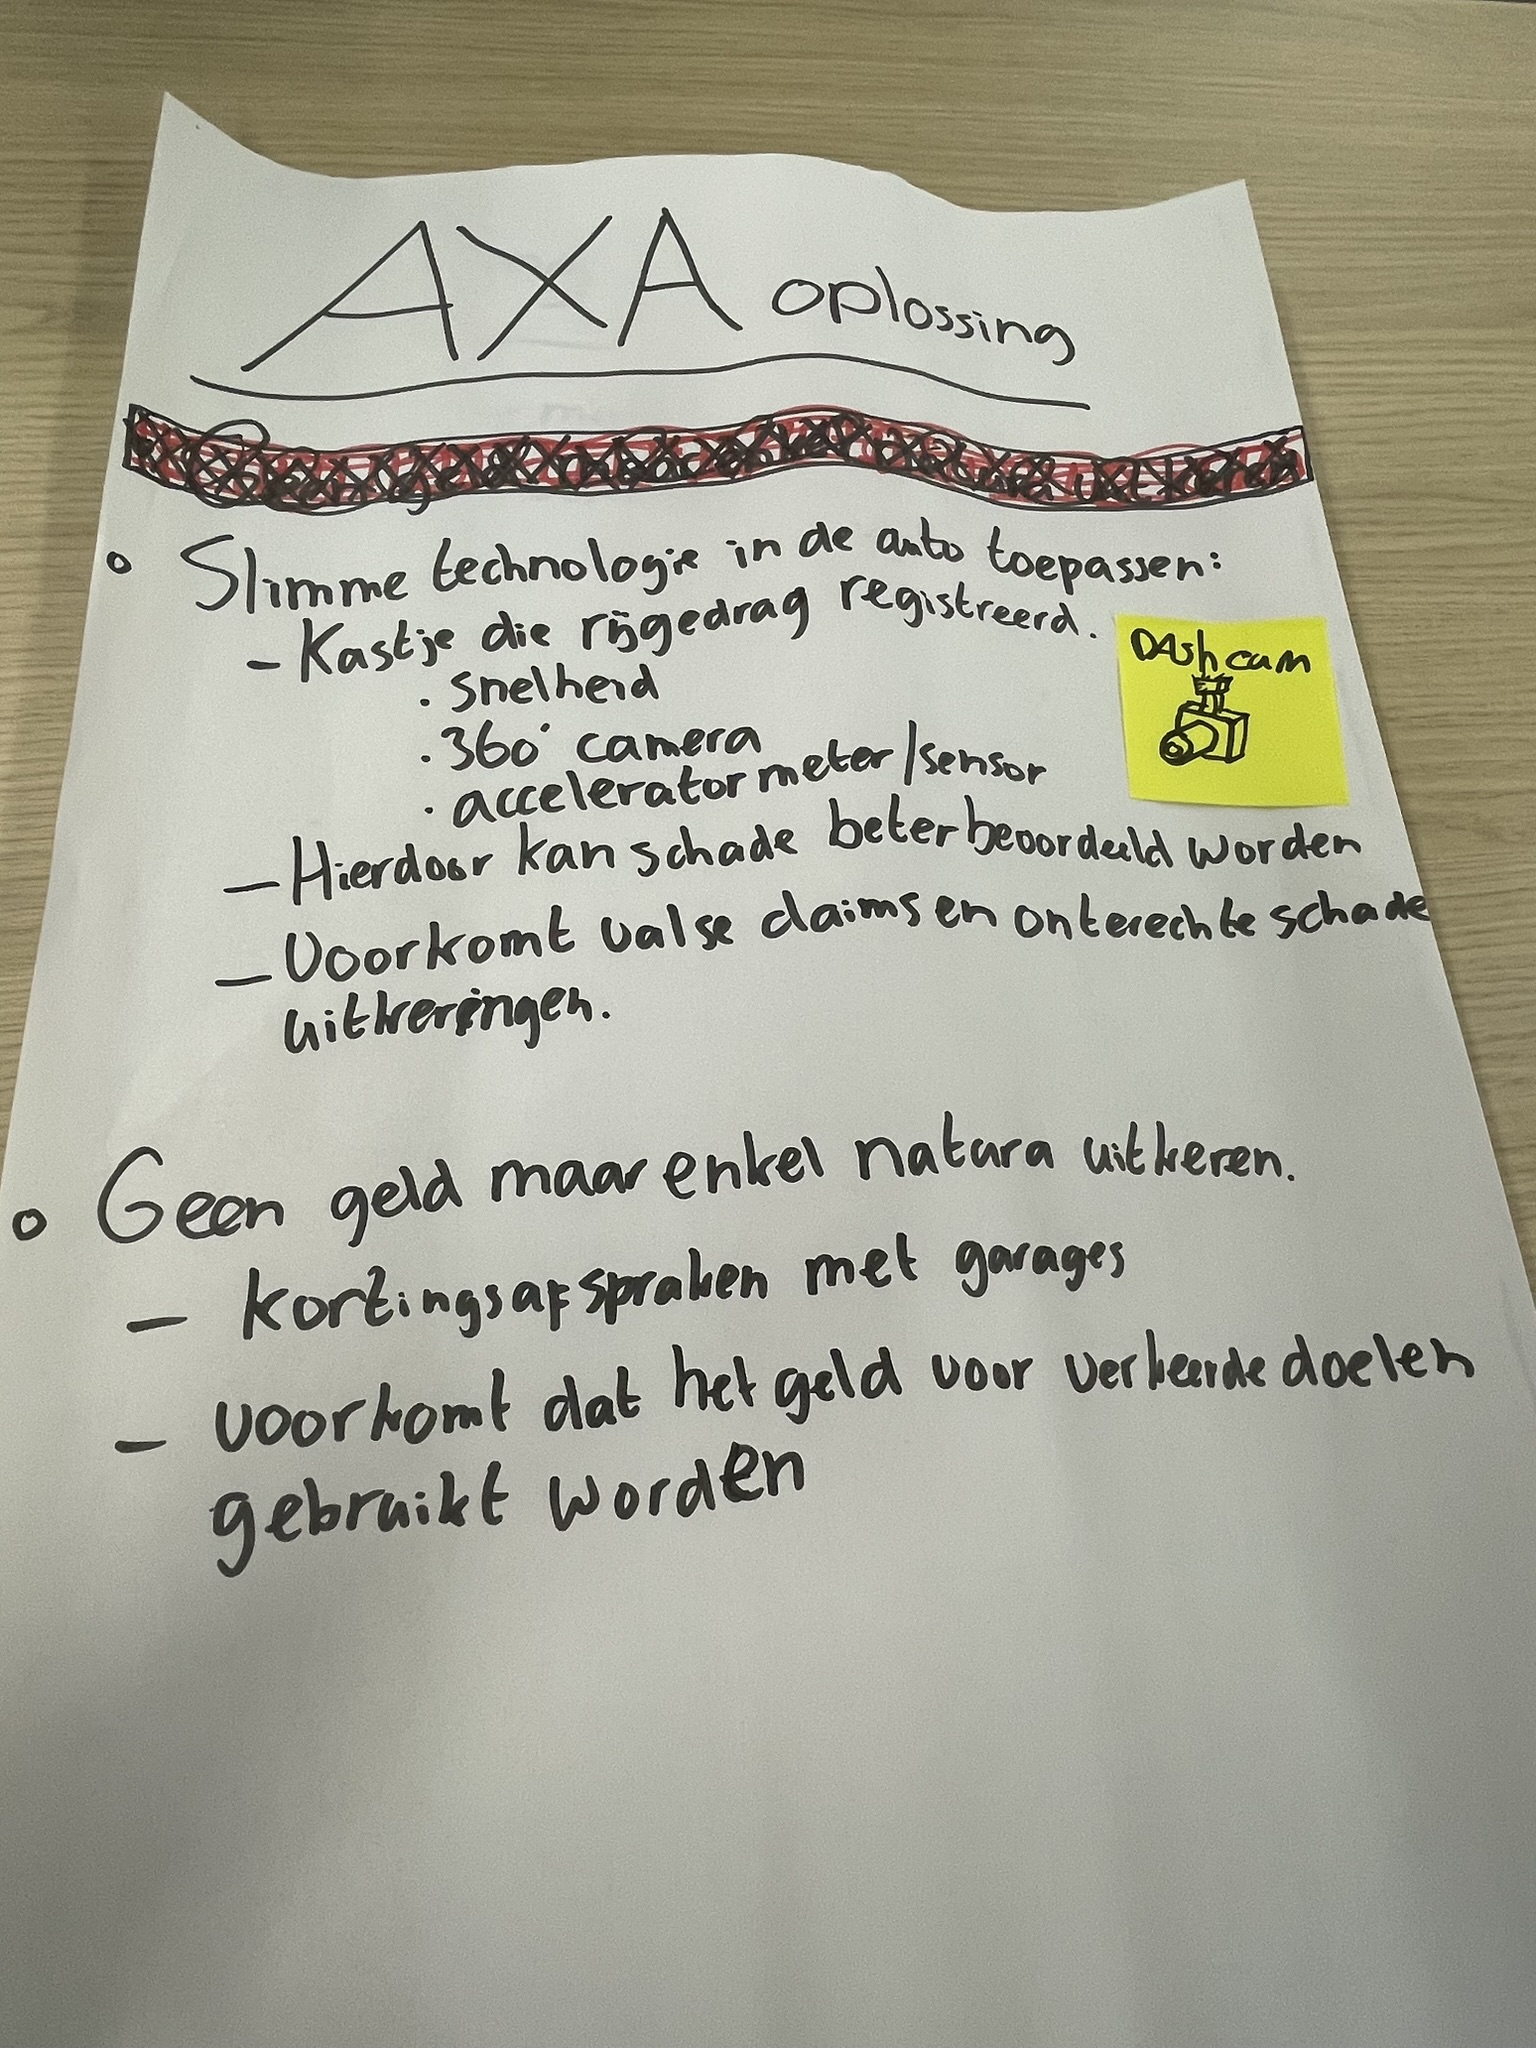 AXA oplossing
o Slimme technologie in de auto toepassen:
- Kastje die rijgedrag registreerd.
DAshcam
. snelheid
. 360° camera
. accelerator meter/sensor
- Hierdoor kan schade beter beoordeeld worden
- Voorkomt valse claims en onterechte schade
uitkeringen.
o Geen geld maar enkel natura uitkeren.
- kortingsafspraken met garages
- voorkomt dat het geld voor verkeerde doelen
gebruikt worden